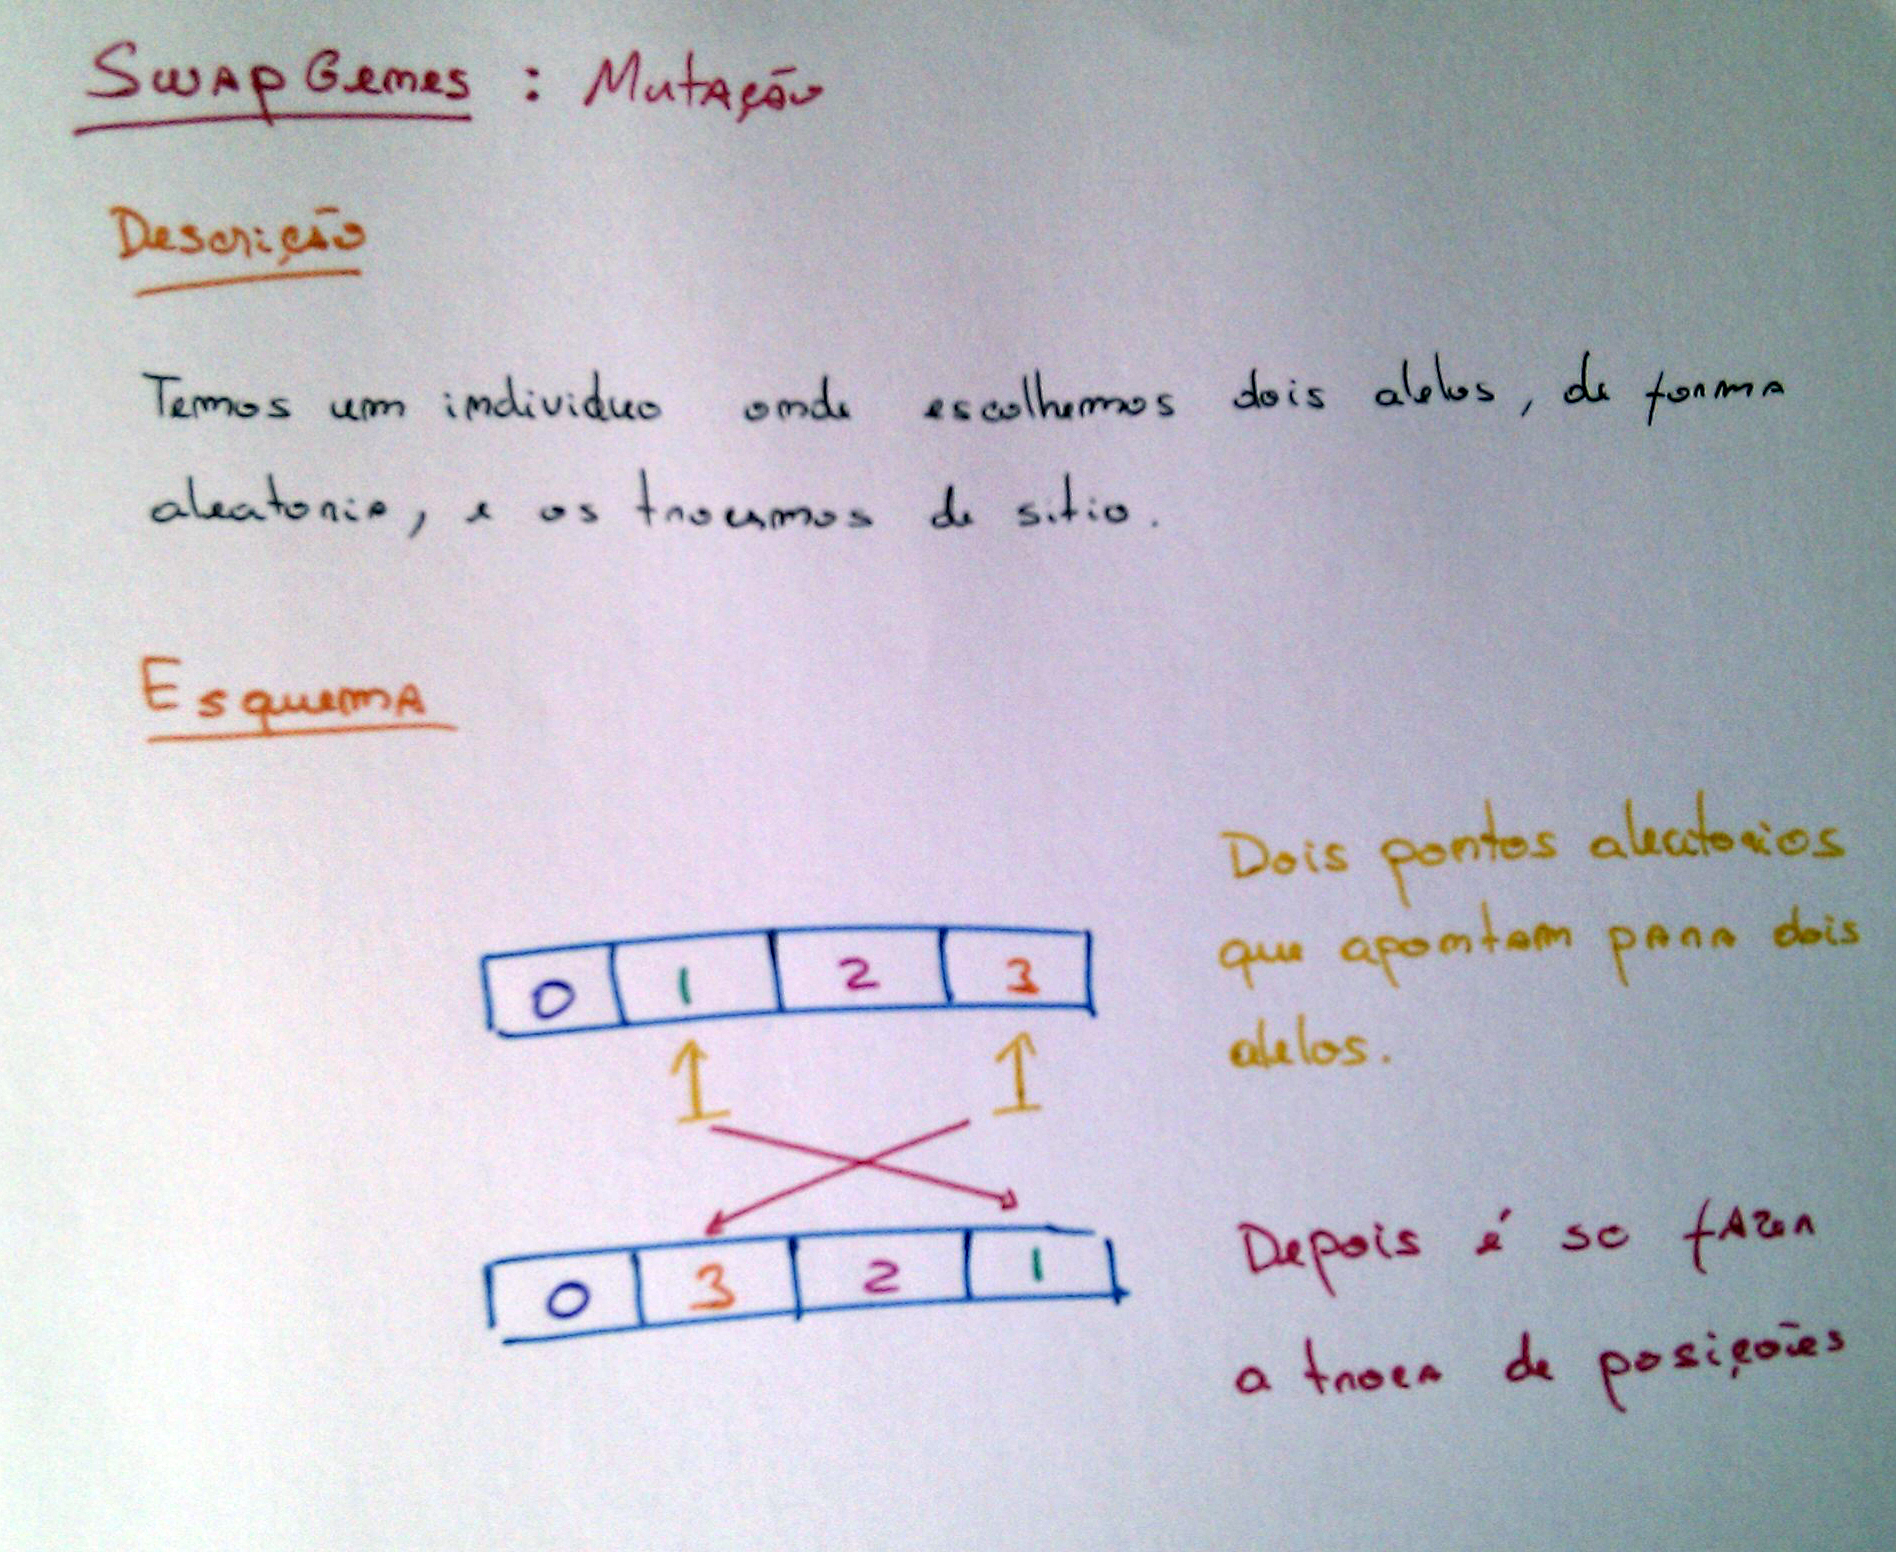 Swap Genes : Mutação
Descrição
Temos um individuo onde escolhemos dois alelos, de forma
aleatoria, e os trocamos de sitio.
Esquema
Dois pontos aleatorios
que apontam para dois
alelos.
0 1 2 3
Depois é so fazer
a troca de posições
0 3 2 1